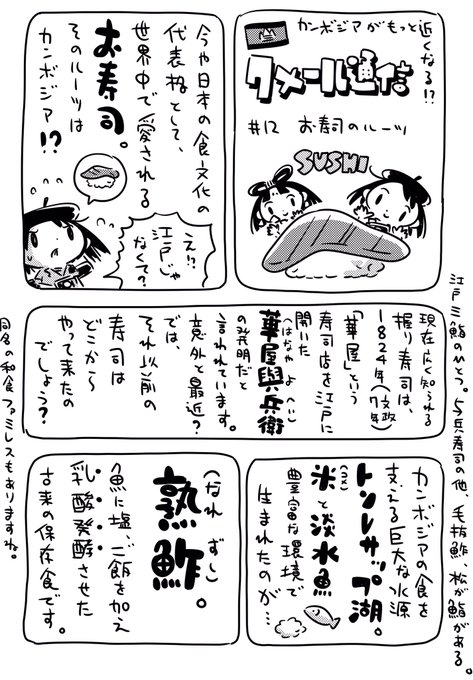 カンボジアがもっと近くなる!?
クメール通信
#12 お寿司のルーツ
SUSHI
今や日本の食文化の
代表格として、
世界中で愛される
お寿司。
そのルーツは
カンボジア!?
え!?
江戸じゃ
なくて?
現在広く知られる
握り寿司は、
1824年(文政7年)
「華屋」という
寿司店を江戸に
開いた
華屋與兵衛
(はなや よへい)
の発明だと
言われています。
意外と最近?
それ以前の
寿司は
どこから
やって来たの
でしょう?
江戸三鮨のひとつ。与兵寿司の他、毛抜鮓、松が鮨がある。
同名の和食ファミレスもありますね。
カンボジアの食を
支える巨大な水源
トンレサップ湖。
米(コメ)と淡水魚
豊富な環境で
生まれたのが…
(なれ ずし)
熟鮓。
魚に塩、ご飯を加え
乳酸発酵させた
古来の保存食です。